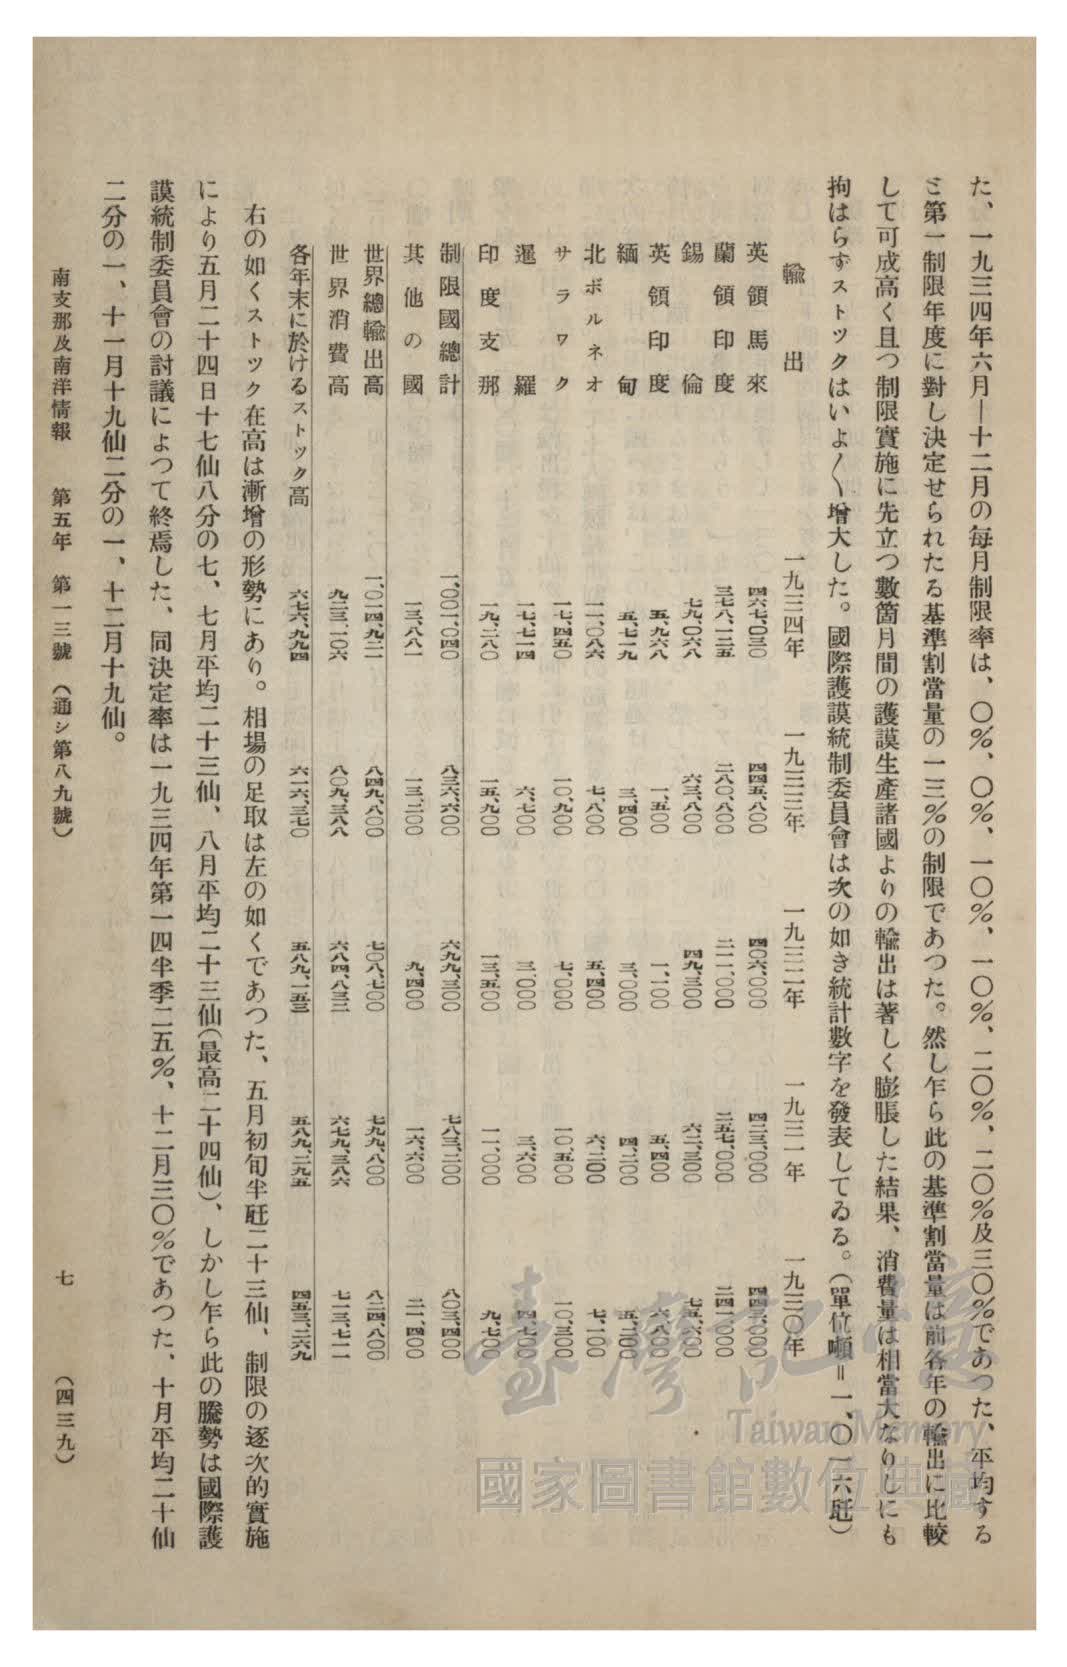 た、一九三四年六月―十二月の毎月制限率は、〇%、〇%、一〇%、一〇%、二〇%、二〇%及三〇%であつた、平均する
と第一制限年度に對し決定せられたる基準割當量の一三%の制限であつた。然し乍ら此の基準割當量は前各年の輸出に比較
して可成高く且つ制限實施に先立つ數箇月間の護謨生產諸國よりの輸出は著しく膨脹した結果、消費量は相當大なりしにも
拘はらずストツクはいよ〱增大した。國際護謨統制委員會は次の如き統計數字を發表してゐる。(單位噸=一、〇一六瓩)
輸出 一九三四年 一九三三年 一九三二年 一九三一年 一九三〇年
英領馬來 四六七、〇三〇 四四五、八〇〇 四〇六、〇〇〇 四二三、〇〇〇 四四三、〇〇〇
蘭領印度 三七八、一三五 二八〇、八〇〇 二一一、〇〇〇 二五七、〇〇〇 二四一、〇〇〇
錫倫 七九、〇六八 六三、八〇〇 四九、三〇〇 六二、三〇〇 七五、六〇〇
英領印度 五、九六八 一、五〇〇 一、一〇〇 五、四〇〇 六、八〇〇
緬甸 五、七一九 三、四〇〇 三、〇〇〇 四、二〇〇 五、二〇〇
北ボルネオ 一一、〇八六 七、八〇〇 五、四〇〇 六、二〇〇 七、一〇〇
サラワク 一七、四五〇 一〇、九〇〇 七、〇〇〇 一〇、五〇〇 一〇、三〇〇
暹羅 一七、七一四 六、七〇〇 三、〇〇〇 三、六〇〇 四、七〇〇
印度支那 一九、二八〇 一五、九〇〇 一三、五〇〇 一一、〇〇〇 九、七〇〇
制限國總計 一、〇〇一、〇四〇 八三六、六〇〇 六九九、三〇〇 七八三、二〇〇 八〇三、四〇〇
其他の國 一三、八八一 一三、二〇〇 九、四〇〇 一六、六〇〇 二一、四〇〇
世界總輸出高 一、〇一四、九二一 八四九、八〇〇 七〇八、七〇〇 七九九、八〇〇 八二四、八〇〇
世界消費高 九二三、一〇六 八〇九、三八八 六八四、八三二 六七九、三八六 七一三、七一一
各年末に於けるストック高 六七六、九九四 六一六、三七〇 五八九、一五三 五八九、二九五 四五三、二六九
右の如くストツク在高は漸增の形勢にあり。相場の足取は左の如くであつた、五月初旬半瓩二十三仙、制限の逐次的實施
により五月二十四日十七仙八分の七、七月平均二十三仙、八月平均二十三仙(最高二十四仙)、しかし乍ら此の騰勢は國際護
謨統制委員會の討議によつて終焉した、同決定率は一九三四年第一四半季二五%、十二月三〇%であつた、十月平均二十仙
二分の一、十一月十九仙二分の一、十二月十九仙。
南支那及南洋情報 第五年 第一三號 (通シ第八九號) 七 (四三九)
臺灣記憶
Taiwan Memory
國家圖書館數位典藏